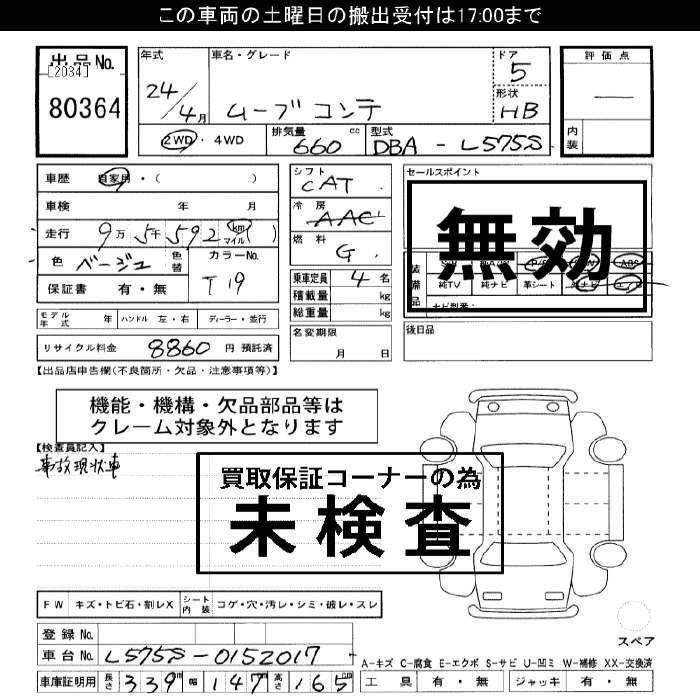 この車両の土曜日の搬出受付は17:00まで
出品No.
[2034]
80364
年式 24/4月
車名・グレード ムーブコンテ
ドア 5
形状 HB
評価点 —
内装
2WD・4WD 排気量 660 cc 型式 DBA - L575S
車歴 自家用・( )
車検 年 月
走行 9万5千592 km マイル ( )
色 ベージュ 色替 カラーNo. T19
保証書 有・無
シフト CAT
冷房 AAC
燃料 G
乗車定員 4名
積載量 kg
総重量 kg
セールスポイント
無効
装備品
P/S P/W ABS
純TV 純ナビ 革シート
モデル年式 年 ハンドル 左・右 ディーラー・並行
名変期限 月 日
後日品
リサイクル料金 8860 円 預託済
【出品店申告欄(不良箇所・欠品・注意事項等)】
機能・機構・欠品部品等は
クレーム対象外となります
【検査員記入】
事故現状車
買取保証コーナーの為
未検査
FW キズ・トビ石・割レX シート内装 コゲ・穴・汚レ・シミ・破レ・スレ
登録No.
車台No. L575S-0152017
スペア
A-キズ C-腐食 E-エクボ S-サビ U-凹ミ W-補修 XX-交換済
車庫証明用 長さ 339 cm 幅 147 cm 高さ 165 cm
工具 有・無 ジャッキ 有・無